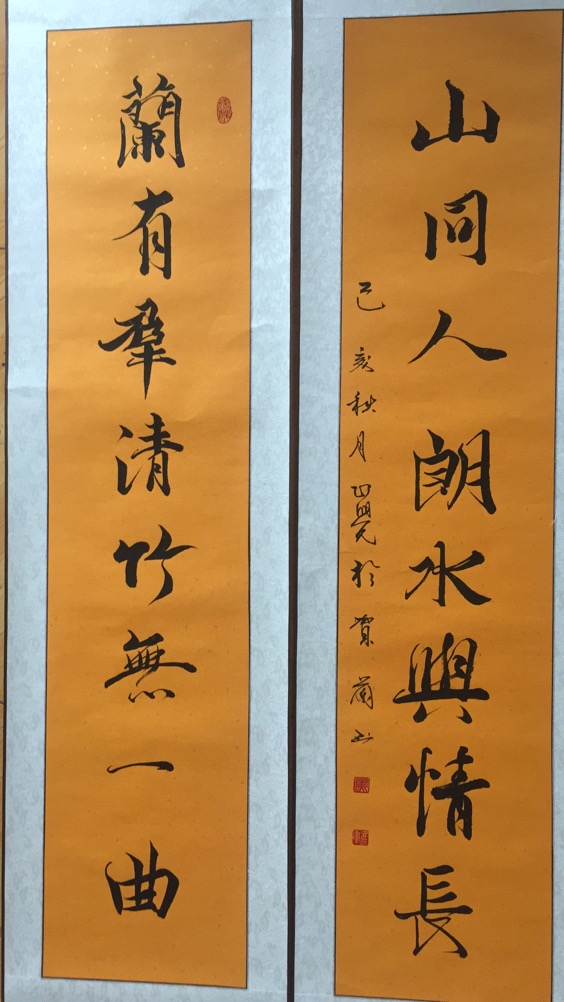 蘭有羣清竹無一曲
山同人朗水與情長
己亥秋月正覺於賀蘭書